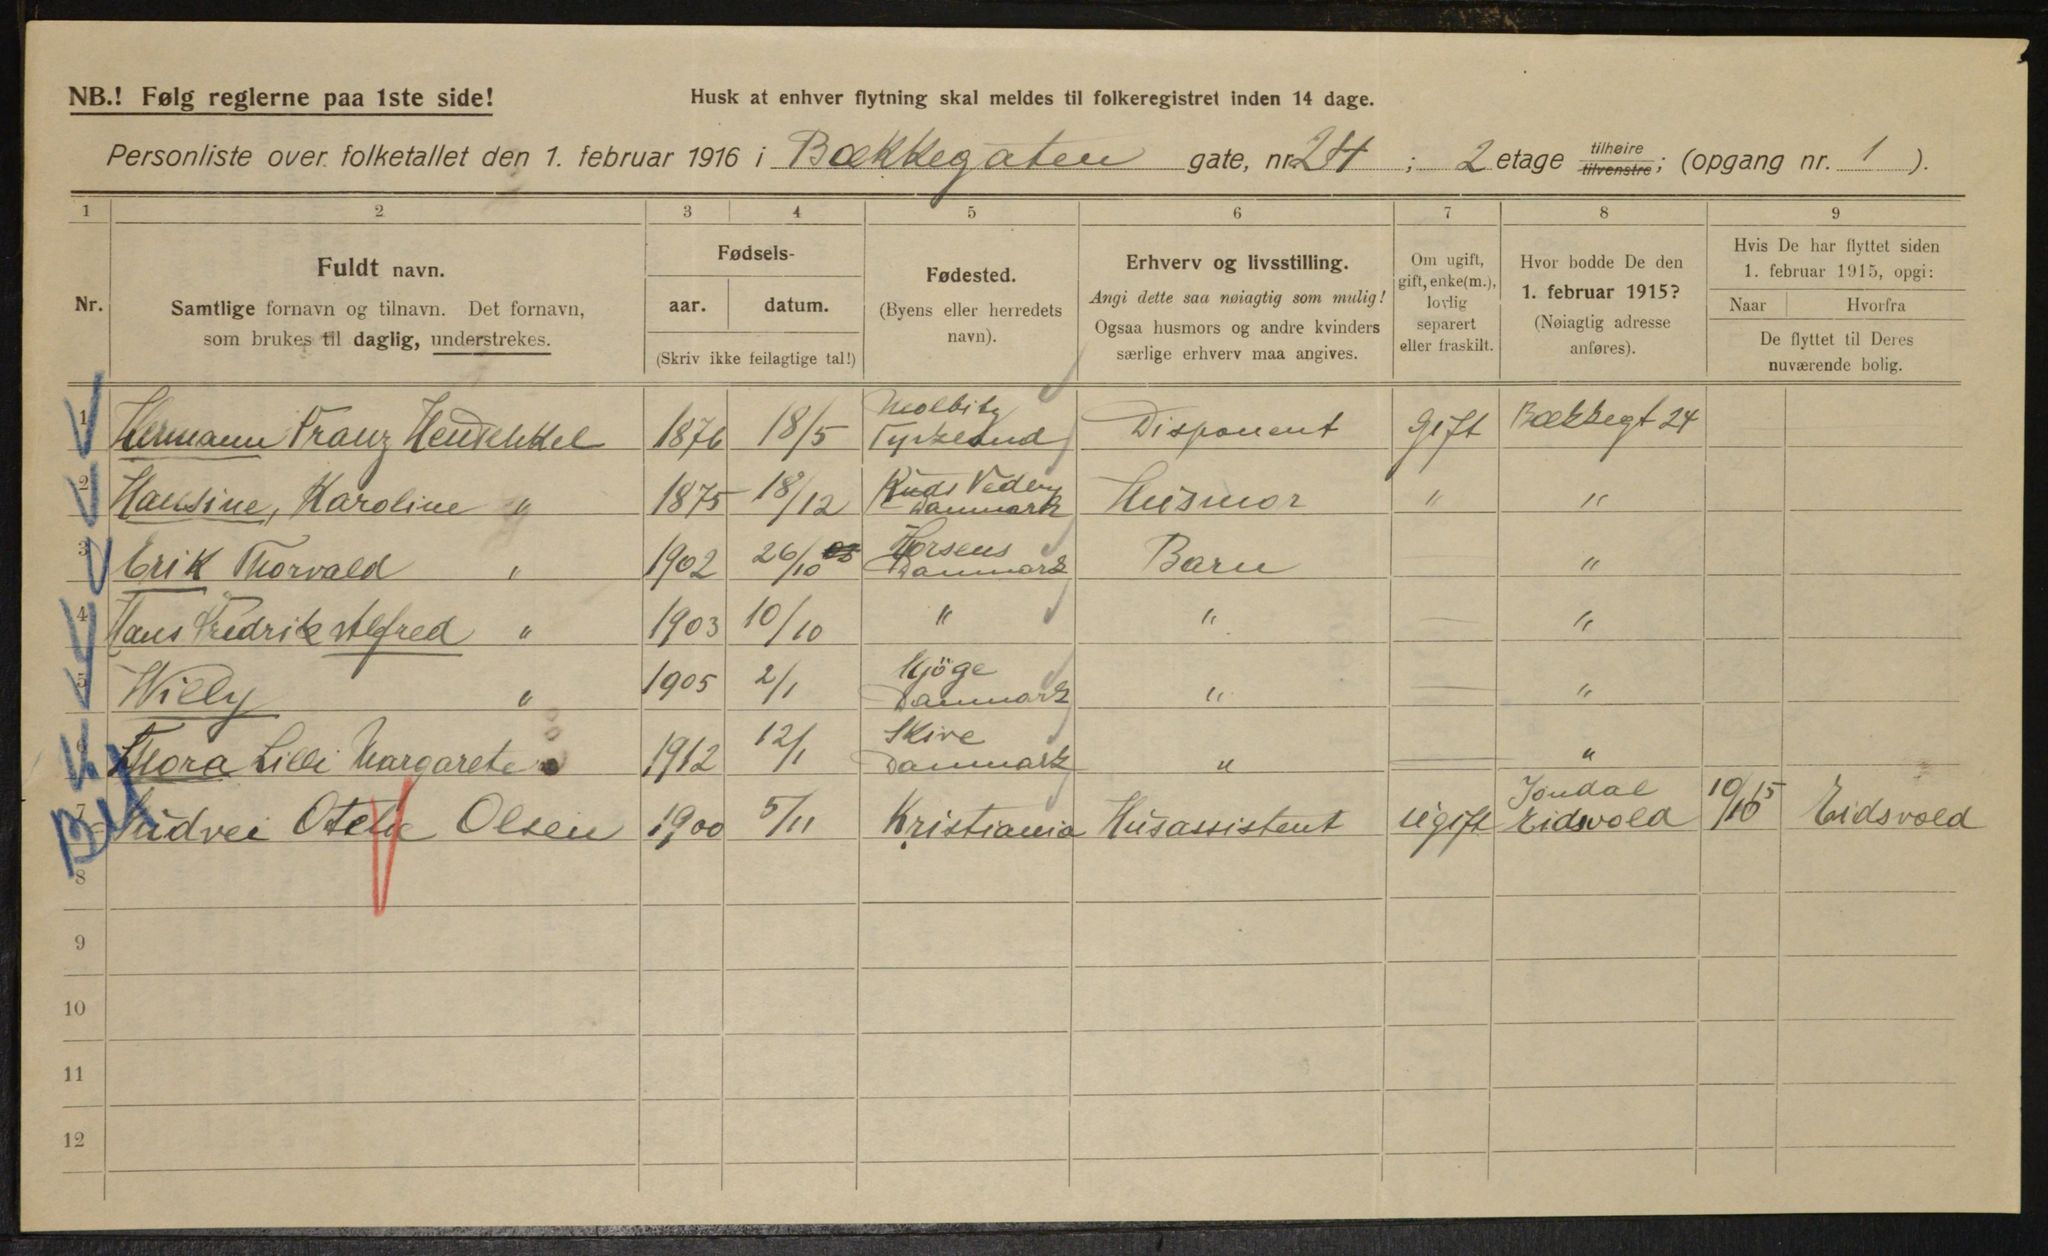 NB.! Følg reglerne paa 1ste side!
Husk at enhver flytning skal meldes til folkeregistret inden 14 dage.
Personliste over folketallet den 1. februar 1916 i Bækkegaten gate, nr. 24 ; 2 etage tilhøire tilvenstre; (opgang nr. 1 ).
1 2 3 4 5 6 7 8 9
Nr.
Fuldt navn.
Samtlige fornavn og tilnavn. Det fornavn,
som brukes til daglig, understrekes.
Fødsels-
aar. datum.
(Skriv ikke feilagtige tal!)
Fødested.
(Byens eller herredets
navn).
Erhverv og livsstilling.
Angi dette saa nøiagtig som mulig!
Ogsaa husmors og andre kvinders
særlige erhverv maa angives.
Om ugift,
gift, enke(m.),
lovlig
separert
eller fraskilt.
Hvor bodde De den
1. februar 1915?
(Nøiagtig adresse
anføres).
Hvis De har flyttet siden
1. februar 1915, opgi:
Naar Hvorfra
De flyttet til Deres
nuværende bolig.
1 Hermann Franz Henschkel 1876 18/5 Tyskland Disponent gift Bækkegt 24
2 Hansine, Karoline " 1875 18/12 Danmark Husmor " "
3 Erik Thorvald " 1902 26/10 Horsens Danmark Barn "
4 Hans Fredrik Alfred " 1903 10/10 " " — "
5 Willy " 1905 2/1 Kjöge Danmark " — "
6 Thora Lilli Margarete " 1912 12/1 Skive Danmark " — "
7 Otelie Olsen 1900 5/11 Kristiania Husassistent ugift Eidsvold 10/10 15 Eidsvold
8
9
10
11
12